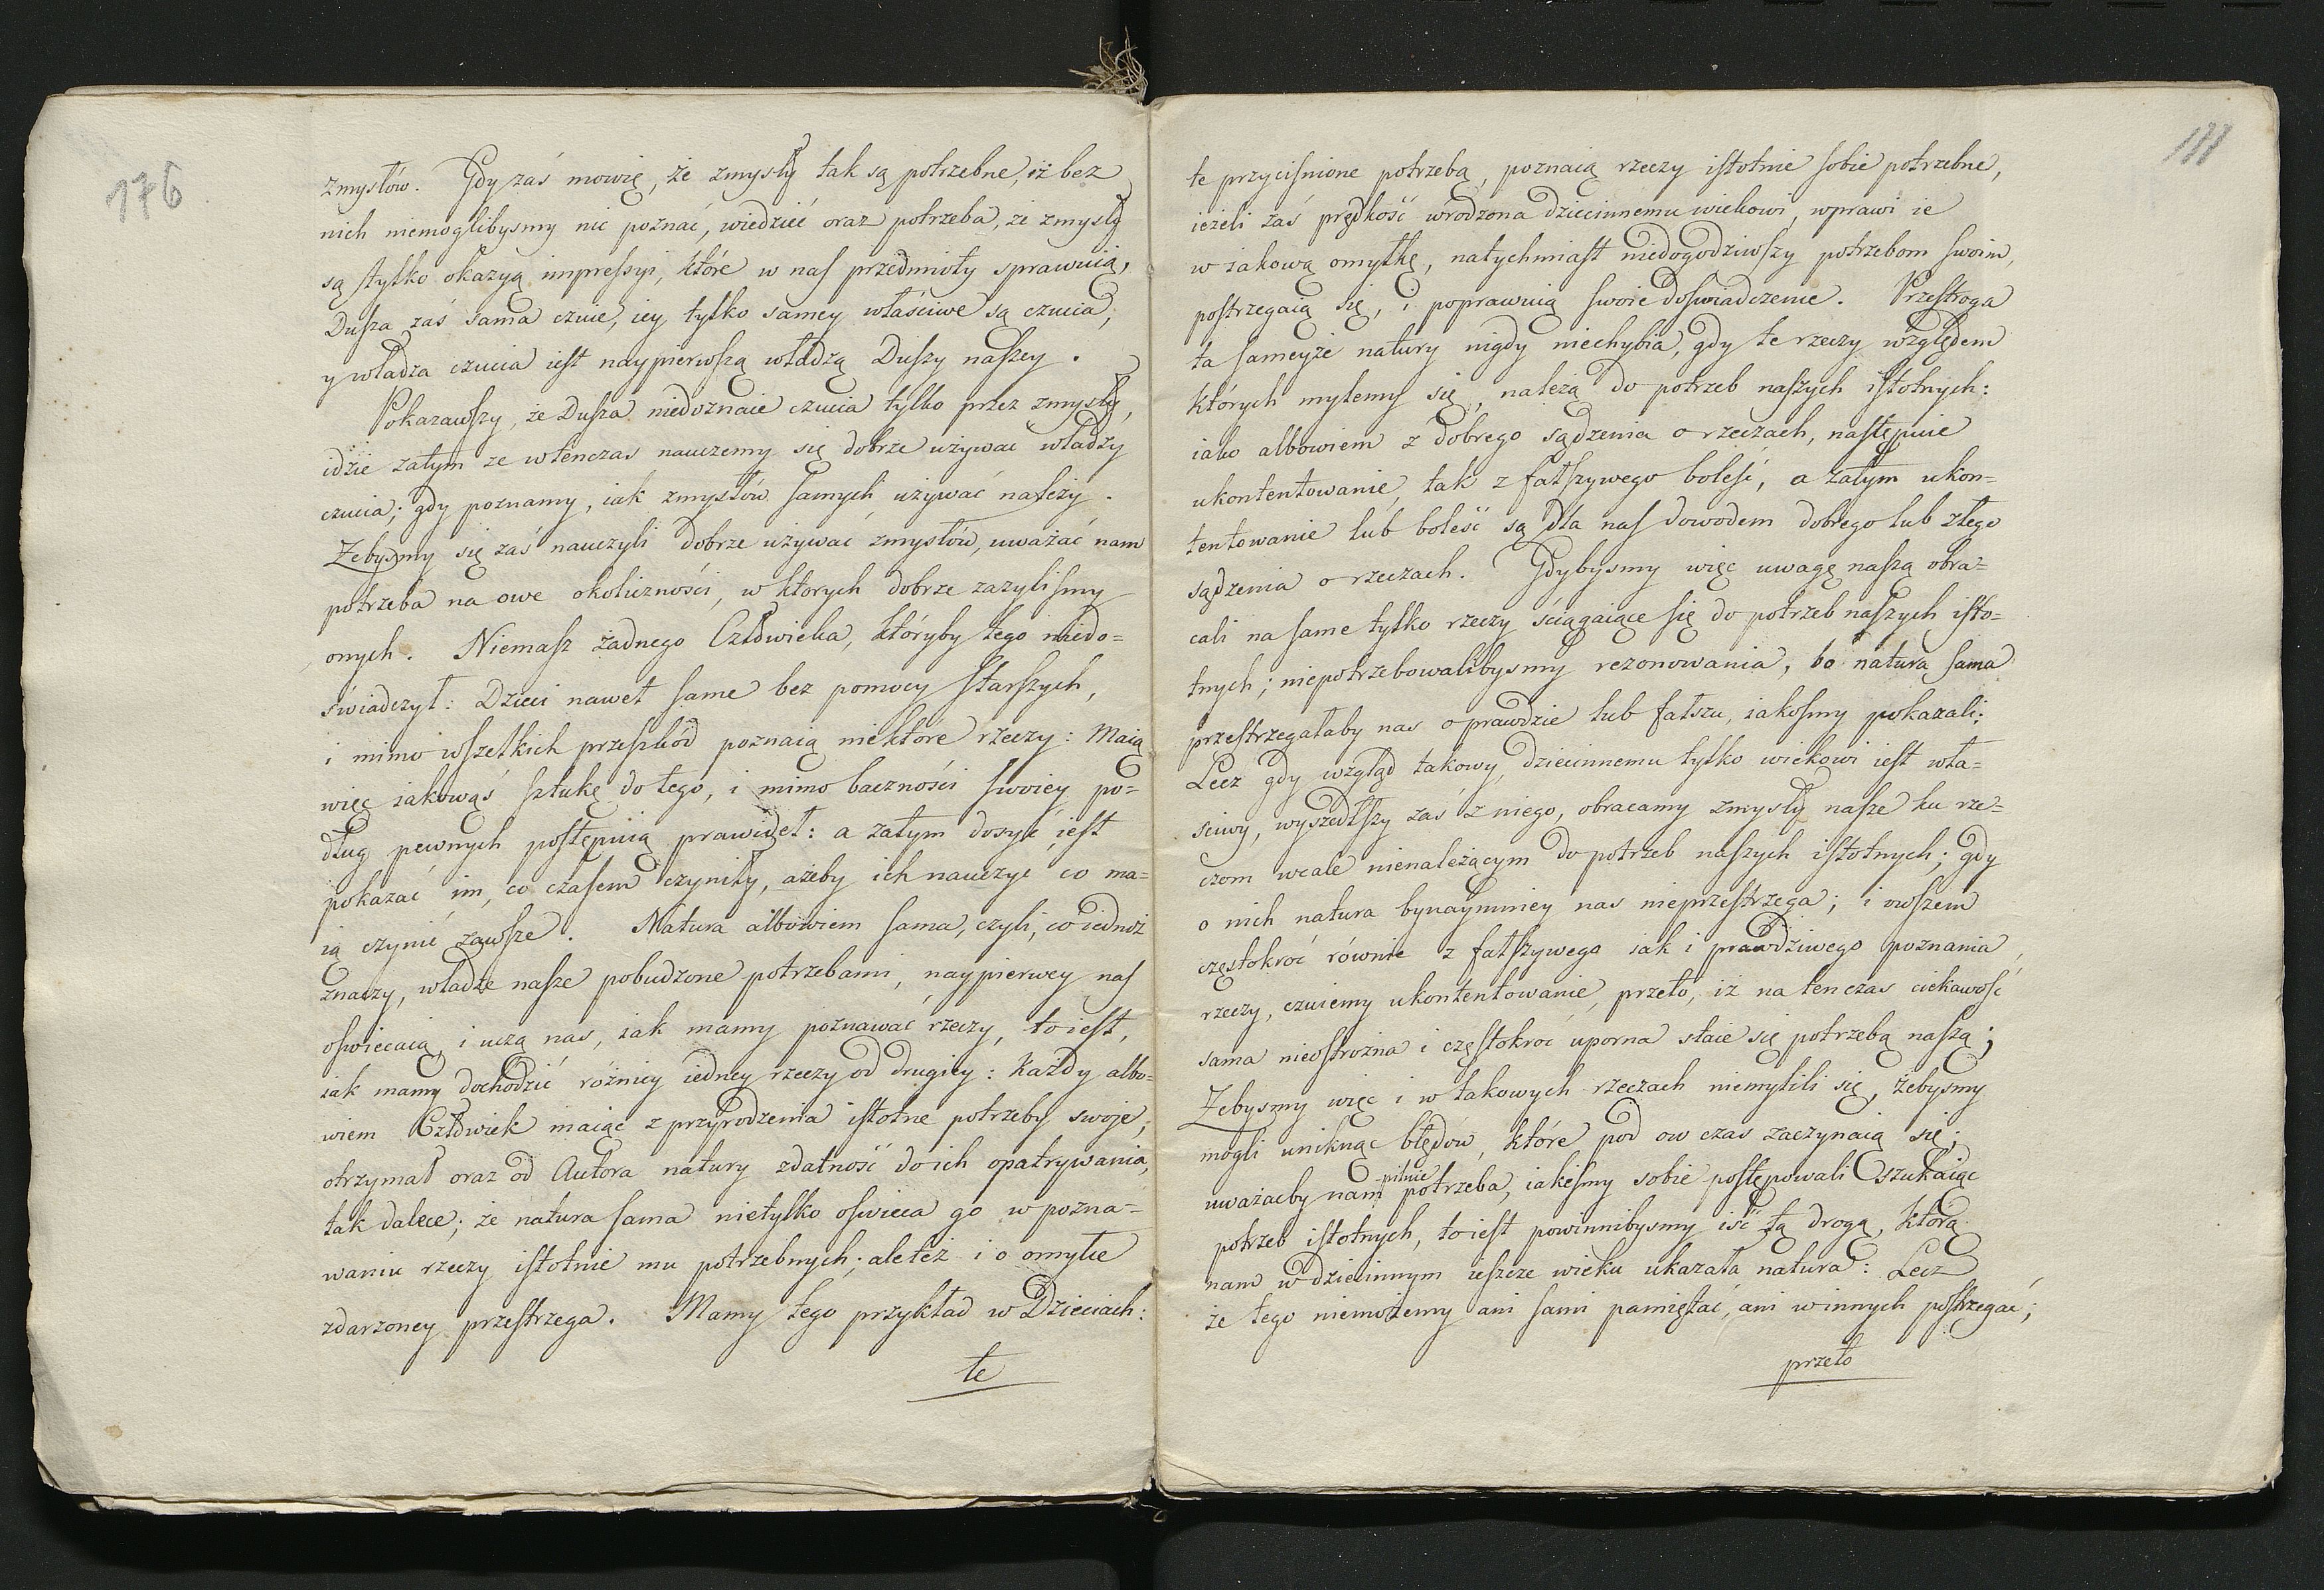 176
zmysłów. Gdy zaś mowię, że zmysły tak są potrzebne, iż bez
nich niemoglibysmy nic poznać, wiedzieć oraz potrzeba, że zmysły
są tylko okazyą impreſsyi, które w naſ przedmioty sprawuią,
Duſza zaś sama czuie, iey tylko samey właściwe są czucia,
y władza czucia ieſt naypierwſzą władzą Duſzy naſzey.
Pokazawſzy, że Duſza niedoznaie czucia tylko przez zmysły,
idzie zatym ze wtenczas nauczemy się dobrze używac władzy
czucia; gdy poznamy, iak zmysłów ſamych używać należy.
Zebysmy się zaś nauczyli dobrze używac zmysłów, uważać nam
potrzeba na owe okoliczności, w ktorych dobrze zazyliſmy
onych. Niemaſz żadnego Człowieka, któryby tego niedo=
świadczył: Dzieci nawet ſame bez pomocy ſtarſzych,
i mimo wſzelkich przeſzkód poznaią niektóre rzeczy: Maią
więc iakowąś ſztukę do tego, i mimo baczności ſwoiey po=
dług pewnych poſtępuią prawideł: a zatym dosyć ieſt
pokazać im, co czaſem czyniły, ażeby ich nauczyć co ma=
ią czynić zawſze. Natura albowiem ſama, czyli, co iednoż
znaczy, władze naſze pobudzone potrzebami, naypierwey naſ
oſwiecaią i uczą nas, iak mamy poznawać rzeczy, to ieſt,
iak mamy dochodzić różnicy iedney rzeczy od drugiey: Każdy albo=
wiem Człowiek maiąc z przyrodzenia iſtotne potrzeby swoje,
otrzymał oraz od Autora natury zdatność do ich opatrywania,
tak dalece; że natura ſama nietylko oſwieca go w pozna=
waniu rzeczy iſtotnie mu potrzebnych; ale też i o omyłce
zdarzoney przeſtrzega. Mamy tego przykład w Dzieciach:
te
177
te przyciſnione potrzebą, poznaią rzeczy iſtotnie ſobie potrzebne,
ieżeli zaś prędkość wrodzona dziecinnemu wiekowi, wprawi ie
w iakową omyłkę, natychmiaſt niedogodziwſzy potrzebom ſwoim,
poſtrzegaią się, i poprawuią ſwoie doſwiadczenie. Przeſtroga
ta ſameyże natury nigdy niechybia, gdy te rzeczy względem
których mylemy się, należą do potrzeb naſzych iſtotnych:
iako albowiem z dobrego sądzenia o rzeczach, naſtępuie
ukontentowanie, tak z fałſzywego boleść, a zatym ukon=
tentowanie lub boleść są dla naſ dowodem dobrego lub złego
sądzenia o rzeczach. Gdybysmy więc uwagę naſzą obra=
cali na ſame tylko rzeczy ściągaiące się do potrzeb naſzych iſto=
tnych; niepotrzebowalibysmy rezonowania, bo natura ſama
przeſtrzegałaby nas o prawdzie lub fałszu, iakoſmy pokazali;
Lecz gdy wzgląd takowy dziecinnemu tylko wiekowi ieſt wła=
sciwy, wyszedłſzy zaś z niego, obracamy zmysły naſze ku rze=
czom wcale nienależącym do potrzeb naſzych iſtotnych; gdy
o nich natura bynaymniey nas nieprzeſtrzega; i owſzem
częſtokroć równie z fałſzywego iak i prawdziwego poznania
rzeczy, czuiemy ukontentowanie, przeto, iż na ten czas ciekawość
sama nieoſtrożna i częſtokroć uporna staie się potrzebą naſzą;
Zebysmy więc i w takowych rzeczach niemylili się, żebysmy
mogli uniknąc błędów, które pod ow czas zaczynaią się;
uważacby nam pilnie potrzeba, iakeſmy sobie poſtępowali szukaiąc
potrzeb iſtotnych, to ieſt powinnibysmy iść tą drogą, którą
nam w dziecinnym ieſzcze wieku ukazała natura: Lecz
że tego niemożemy ani ſami pamiętać, ani w innych poſtrzegać;
przeto